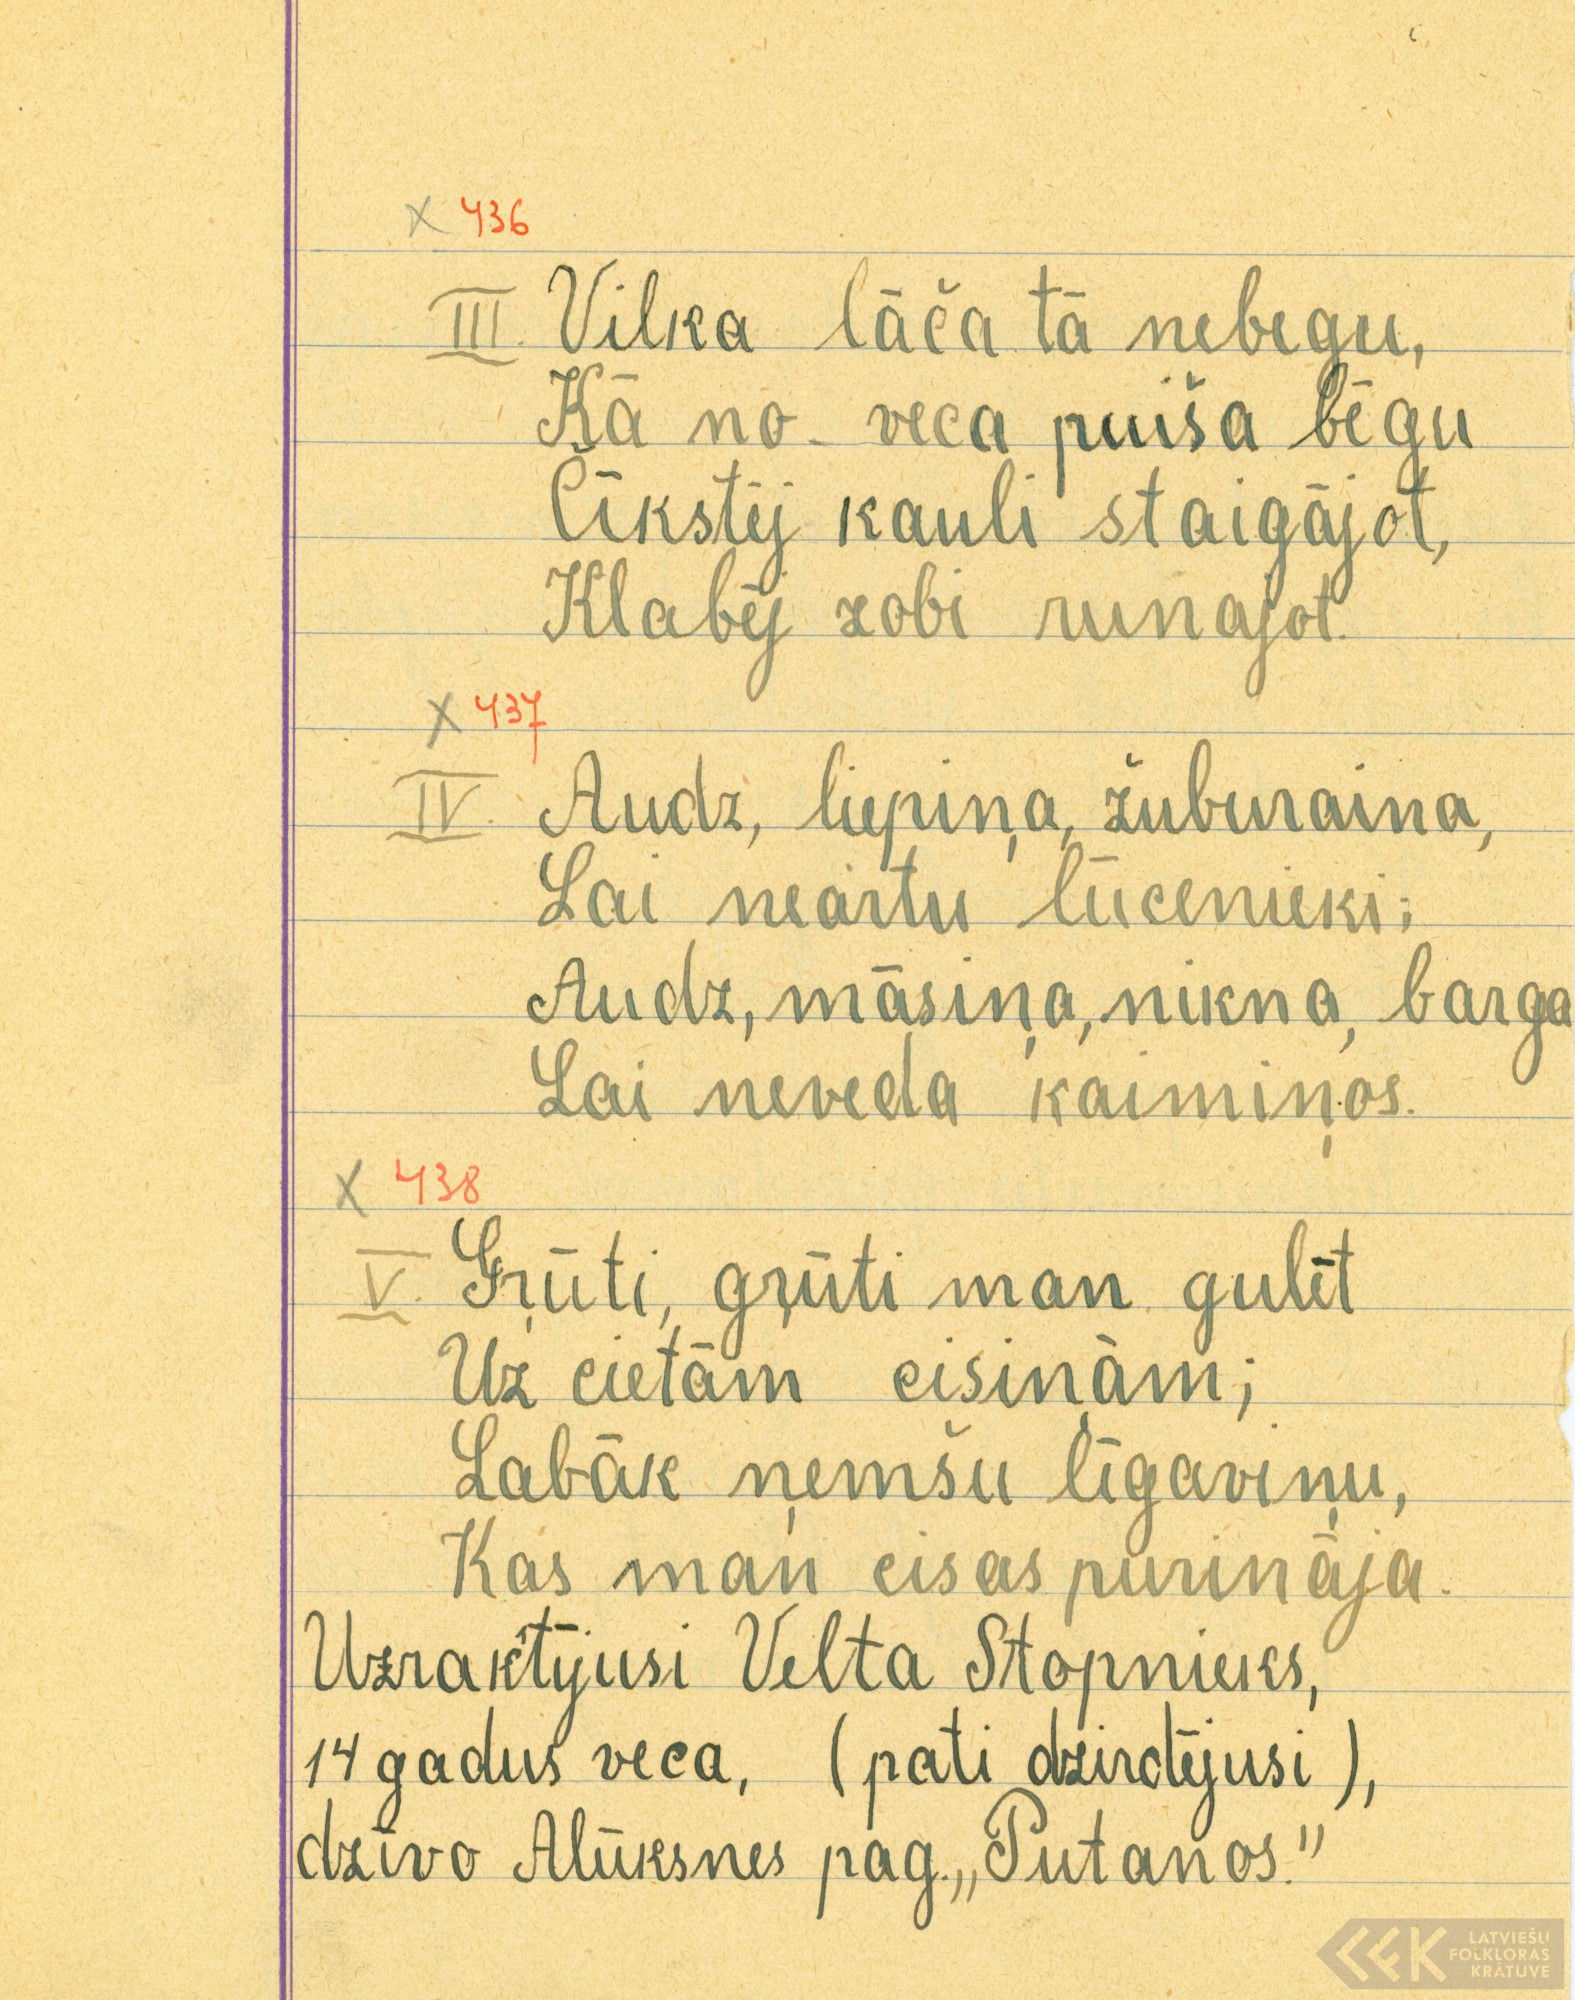 x 436
III. Vilka lāča tā nebegu,
Kā no veca puiša bēgu
Čīkstēj kauli staigājot,
Klabēj zobi runajot.
x 437
IV. Audz, liepiņa, žuburaina,
Lai neartu lūcenieki;
Audz, māsiņa, nikna, barga
Lai neveda kaimiņos.
x 438
V. Gŗūti, gŗūti man gulēt
Uz cietām cisiņām;
Labāk ņemšu līgaviņu,
Kas man cisas purināja.
Uzrakstījusi Velta Stopnieks,
14 gadus veca, (pati dzirdējusi),
dzīvo Alūksnes pag. „Putanos."
LATVIEŠU
FOLKLORAS
KRĀTUVE